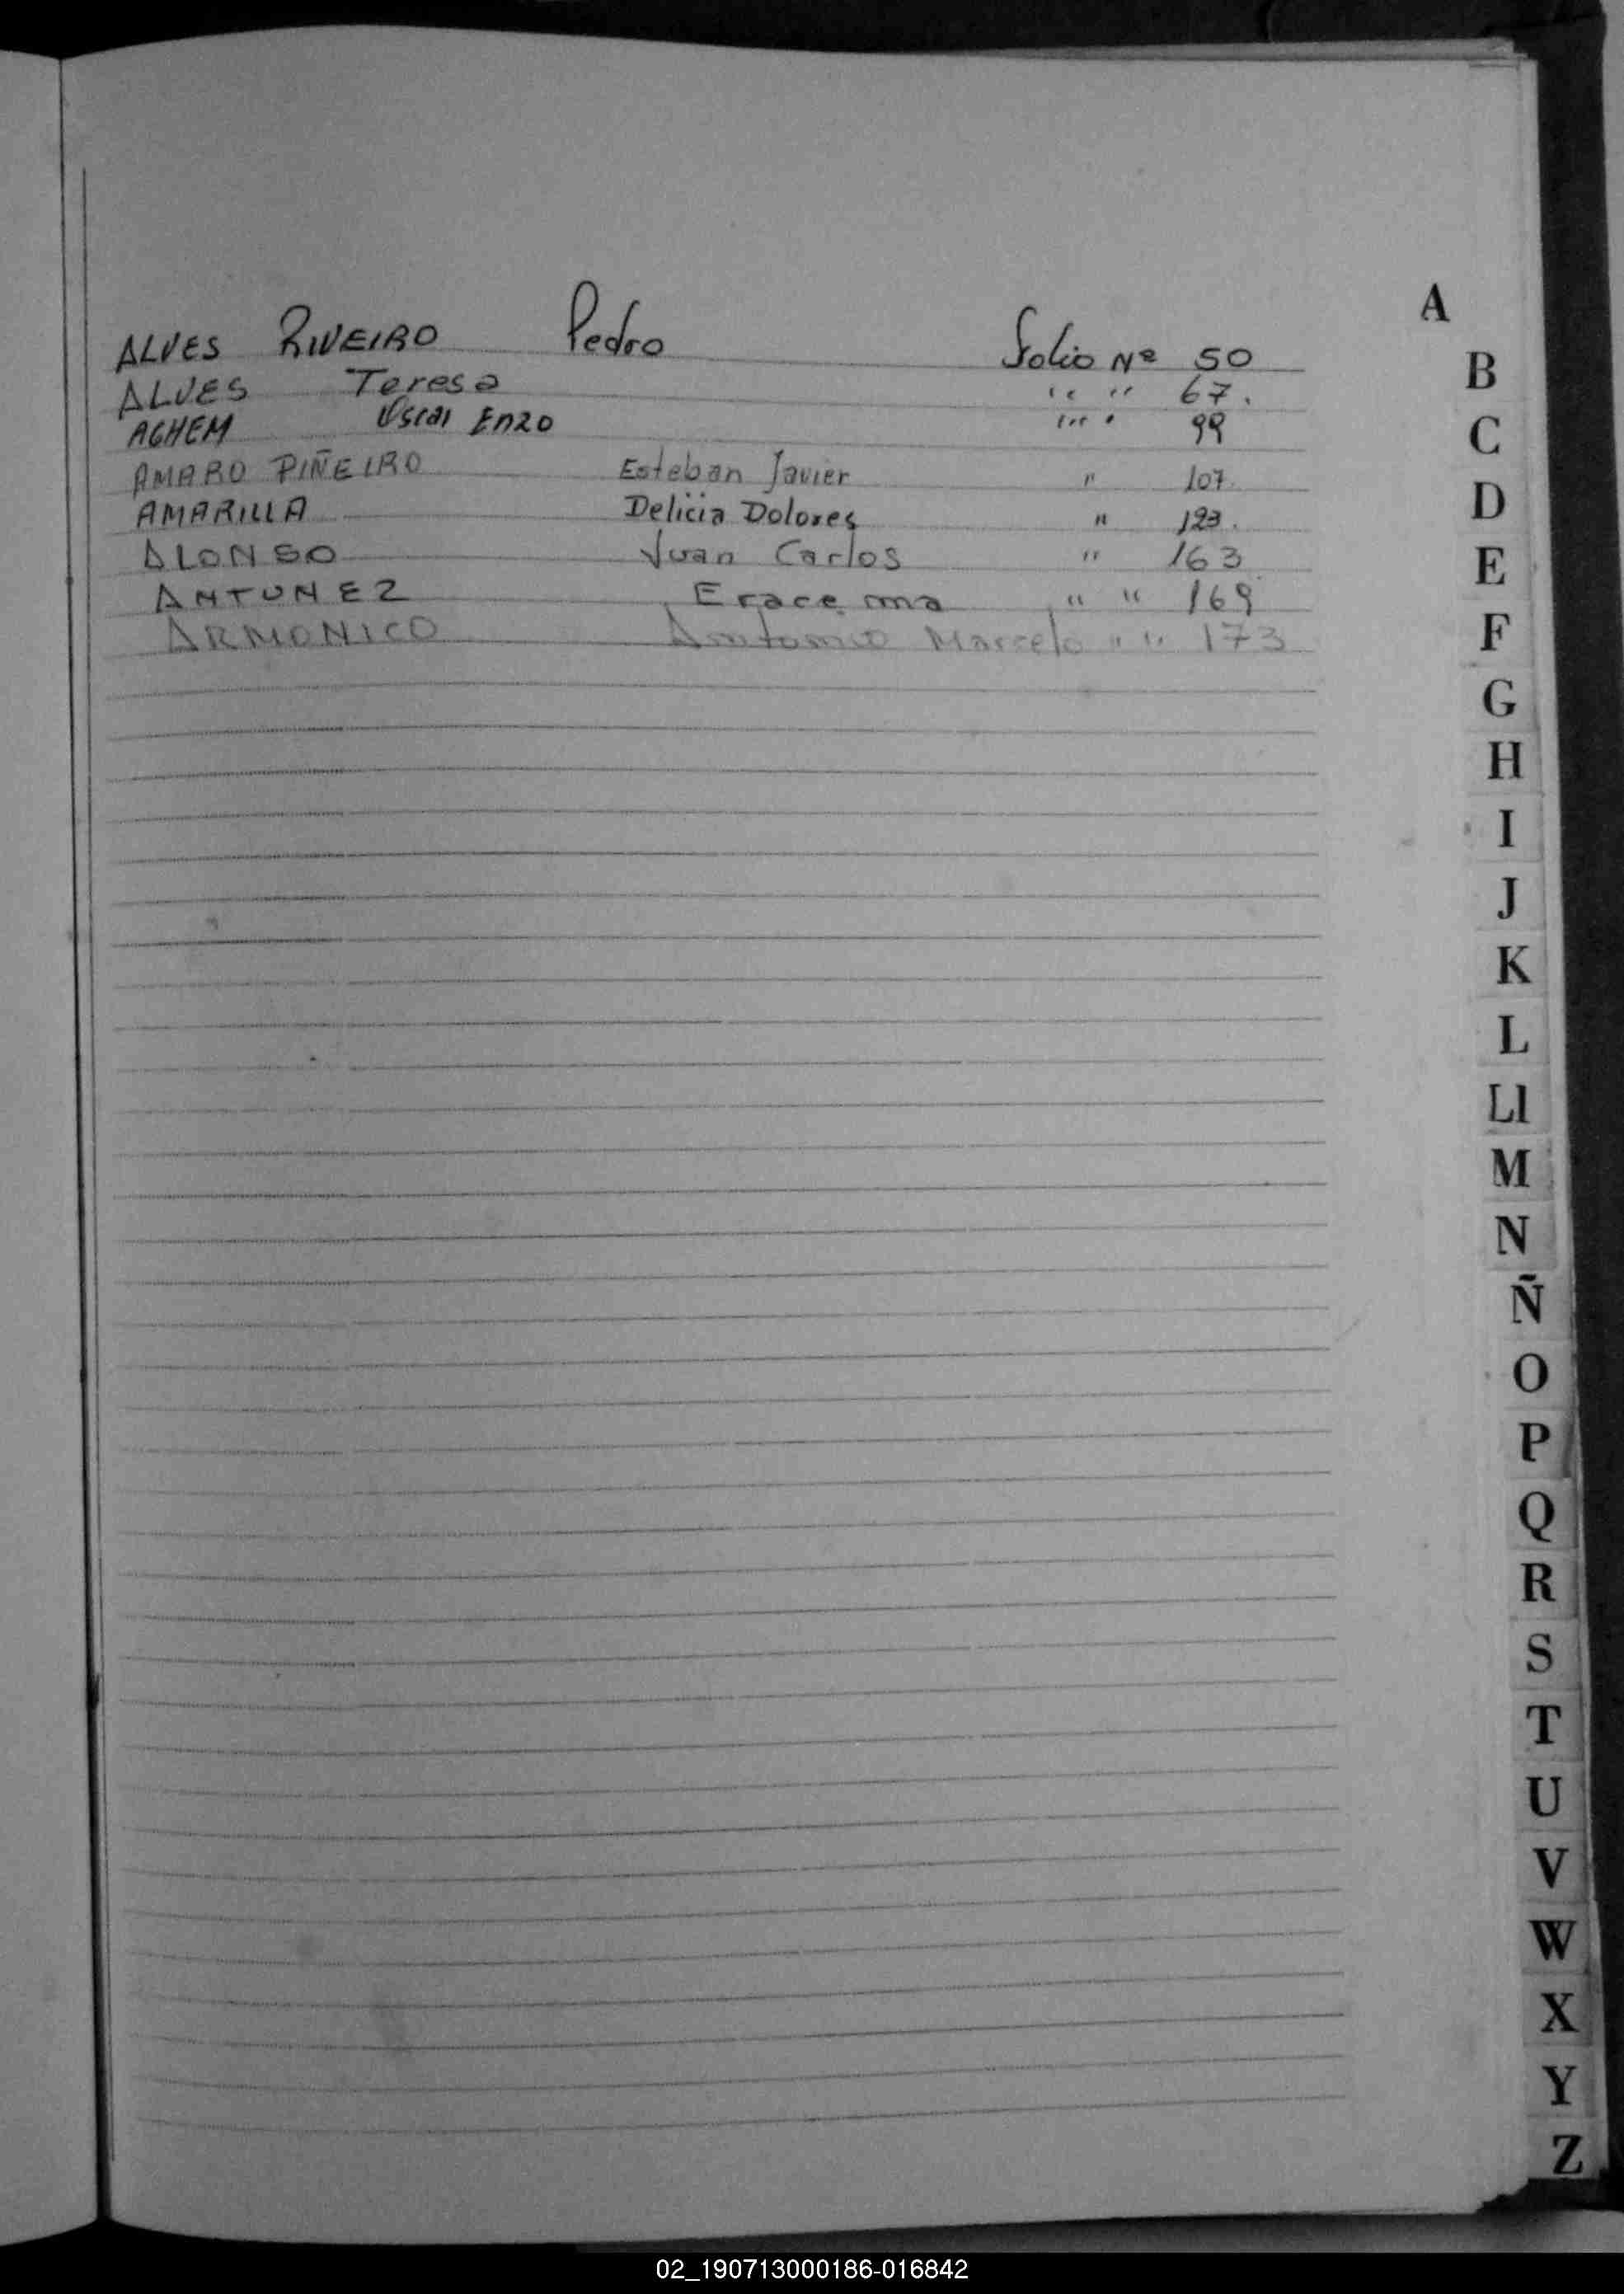 ALVES RIVEIRO Pedro Folio Nº 50
ALVES Teresa " " 67.
AGHEM Oscar Enzo " " 99
AMARO PIÑEIRO Esteban Javier " 107.
AMARILLA Delicia Dolores " 123.
ALONSO Juan Carlos " 163
ANTUNEZ Eracema " " 169
ARMONICO Antonio Marcelo " " 173
A
B
C
D
E
F
G
H
I
J
K
L
Ll
M
N
Ñ
O
P
Q
R
S
T
U
V
W
X
Y
Z
02_190713000186-016842